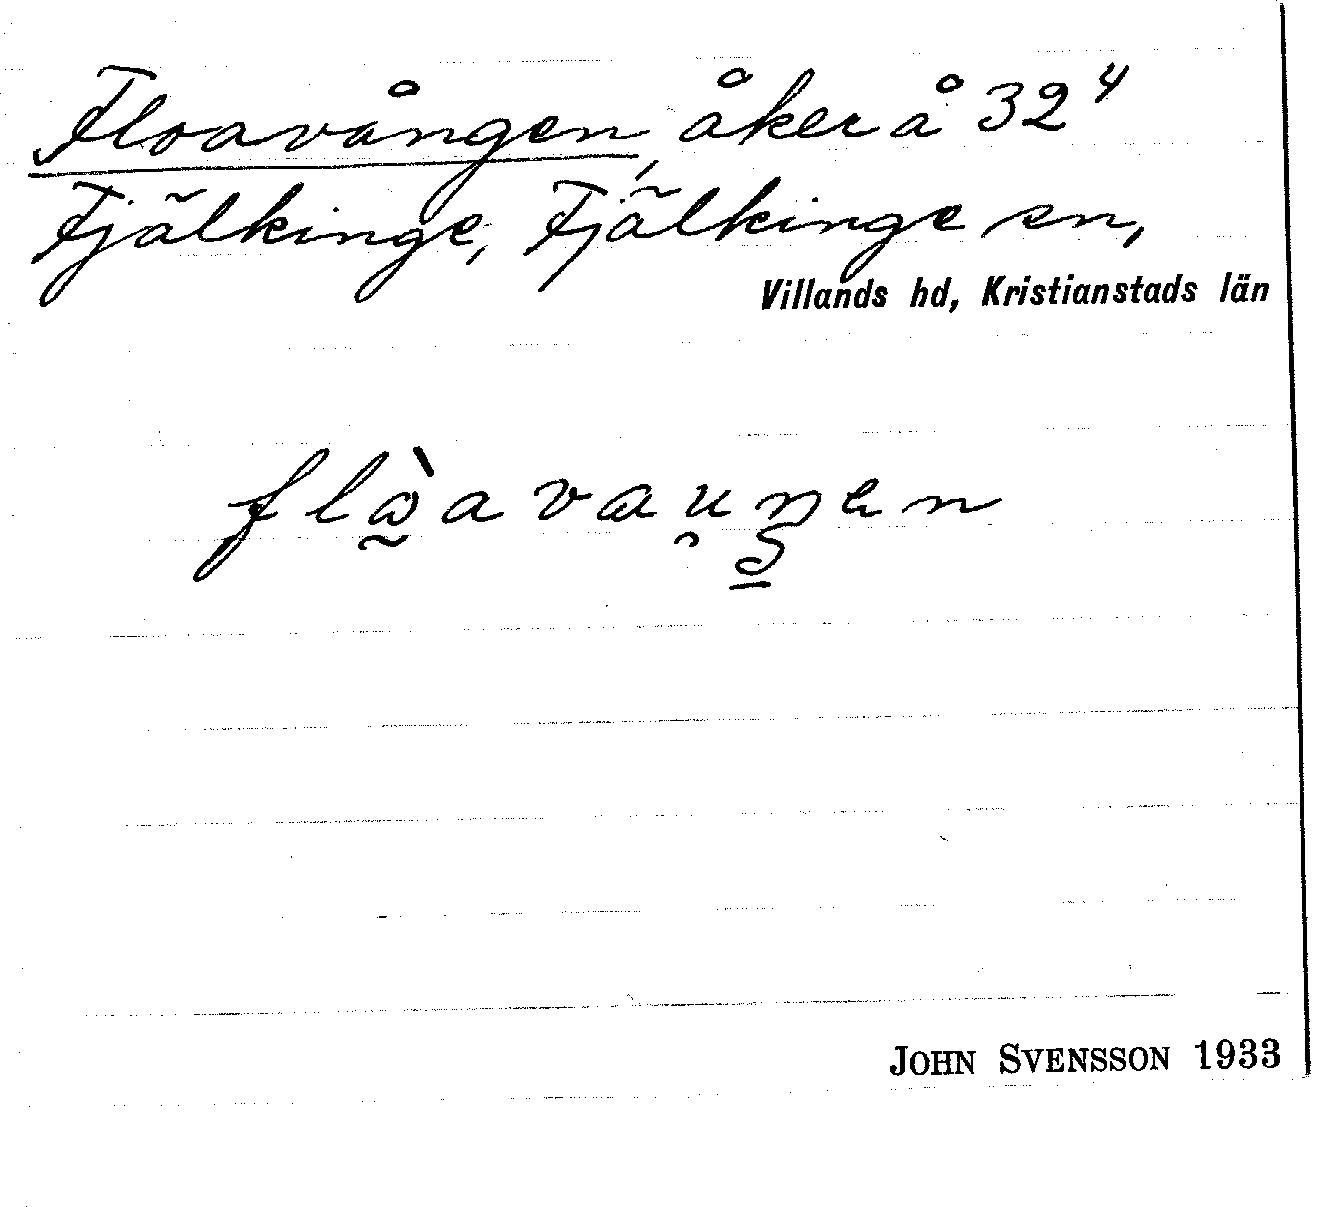 Floavången, åker å 32⁴
Fjälkinge, Fjälkinge sn,
Villands hd, Kristianstads län
flɷ̰̀avaṷŋen
JOHN SVENSSON 1933